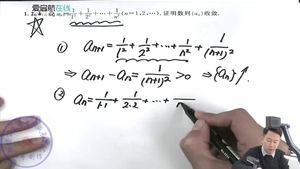 爱启航在线
1. 设 aₙ = 1/1² + 1/2² + ··· + 1/n² (n=1,2,…), 证明数列{aₙ}收敛.
① aₙ₊₁ = 1/1² + 1/2² + ··· + 1/n² + 1/(n+1)²
⇒ aₙ₊₁ - aₙ = 1/(n+1)² > 0 ⇒ {aₙ}↑.
② aₙ = 1/1·1 + 1/2·2 + ··· +